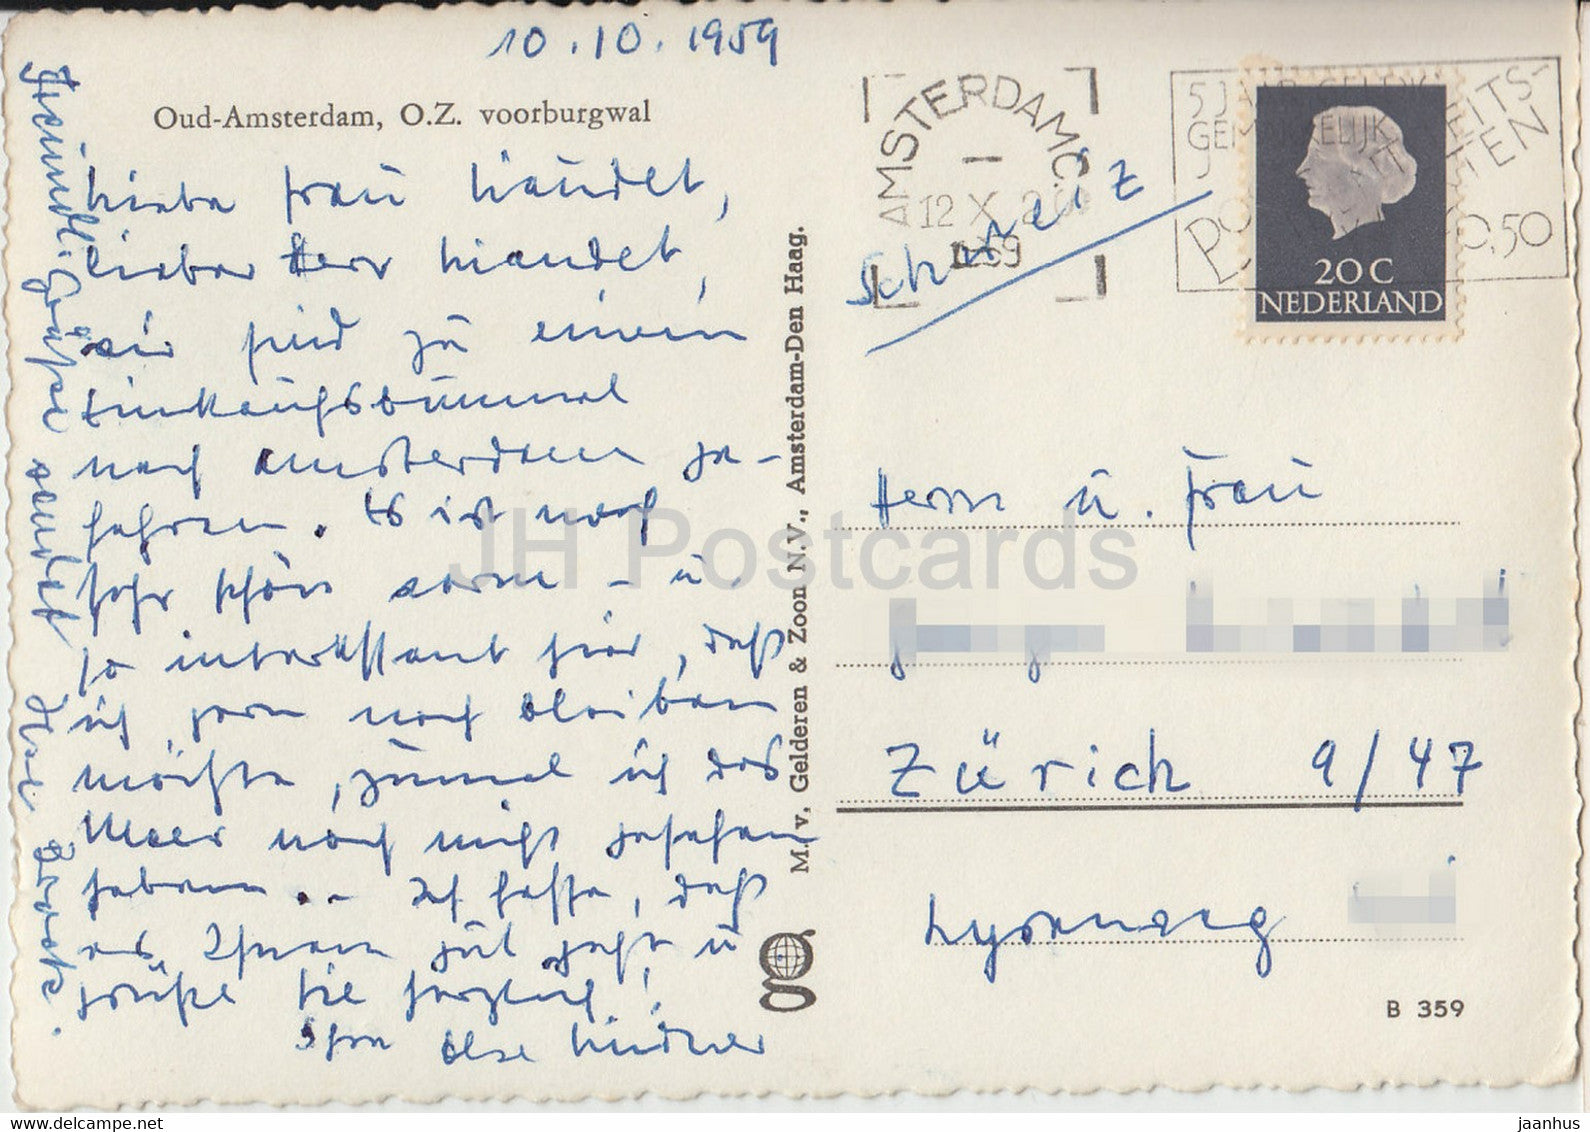 10.10.1959
Oud-Amsterdam, O.Z. voorburgwal
Liebe Frau
lieber Herr
wir sind zu einem
Einkaufsbummel
nach Amsterdam ge-
fahren. Es ist noch
sehr schön warm – u.
so interessant hier, daß
ich gern noch bleiben
möchte, zumal ich das
Meer noch nicht gesehen
haben.. – Ich hoffe, daß
es Ihnen gut geht u
grüße Sie herzlich!
Ihre Else Lindner
Freundl. Grüße sendet
M. v. Gelderen & Zoon N.V., Amsterdam-Den Haag.
AMSTERDAM C.
12 X
1959
5 JAAR
POSTZ
0,50
20 C
NEDERLAND
Schweiz
Herrn u. Frau
Zürich 9/47
Lyrenweg
B 359
JH Postcards
www.delcampe.net
jaanhus